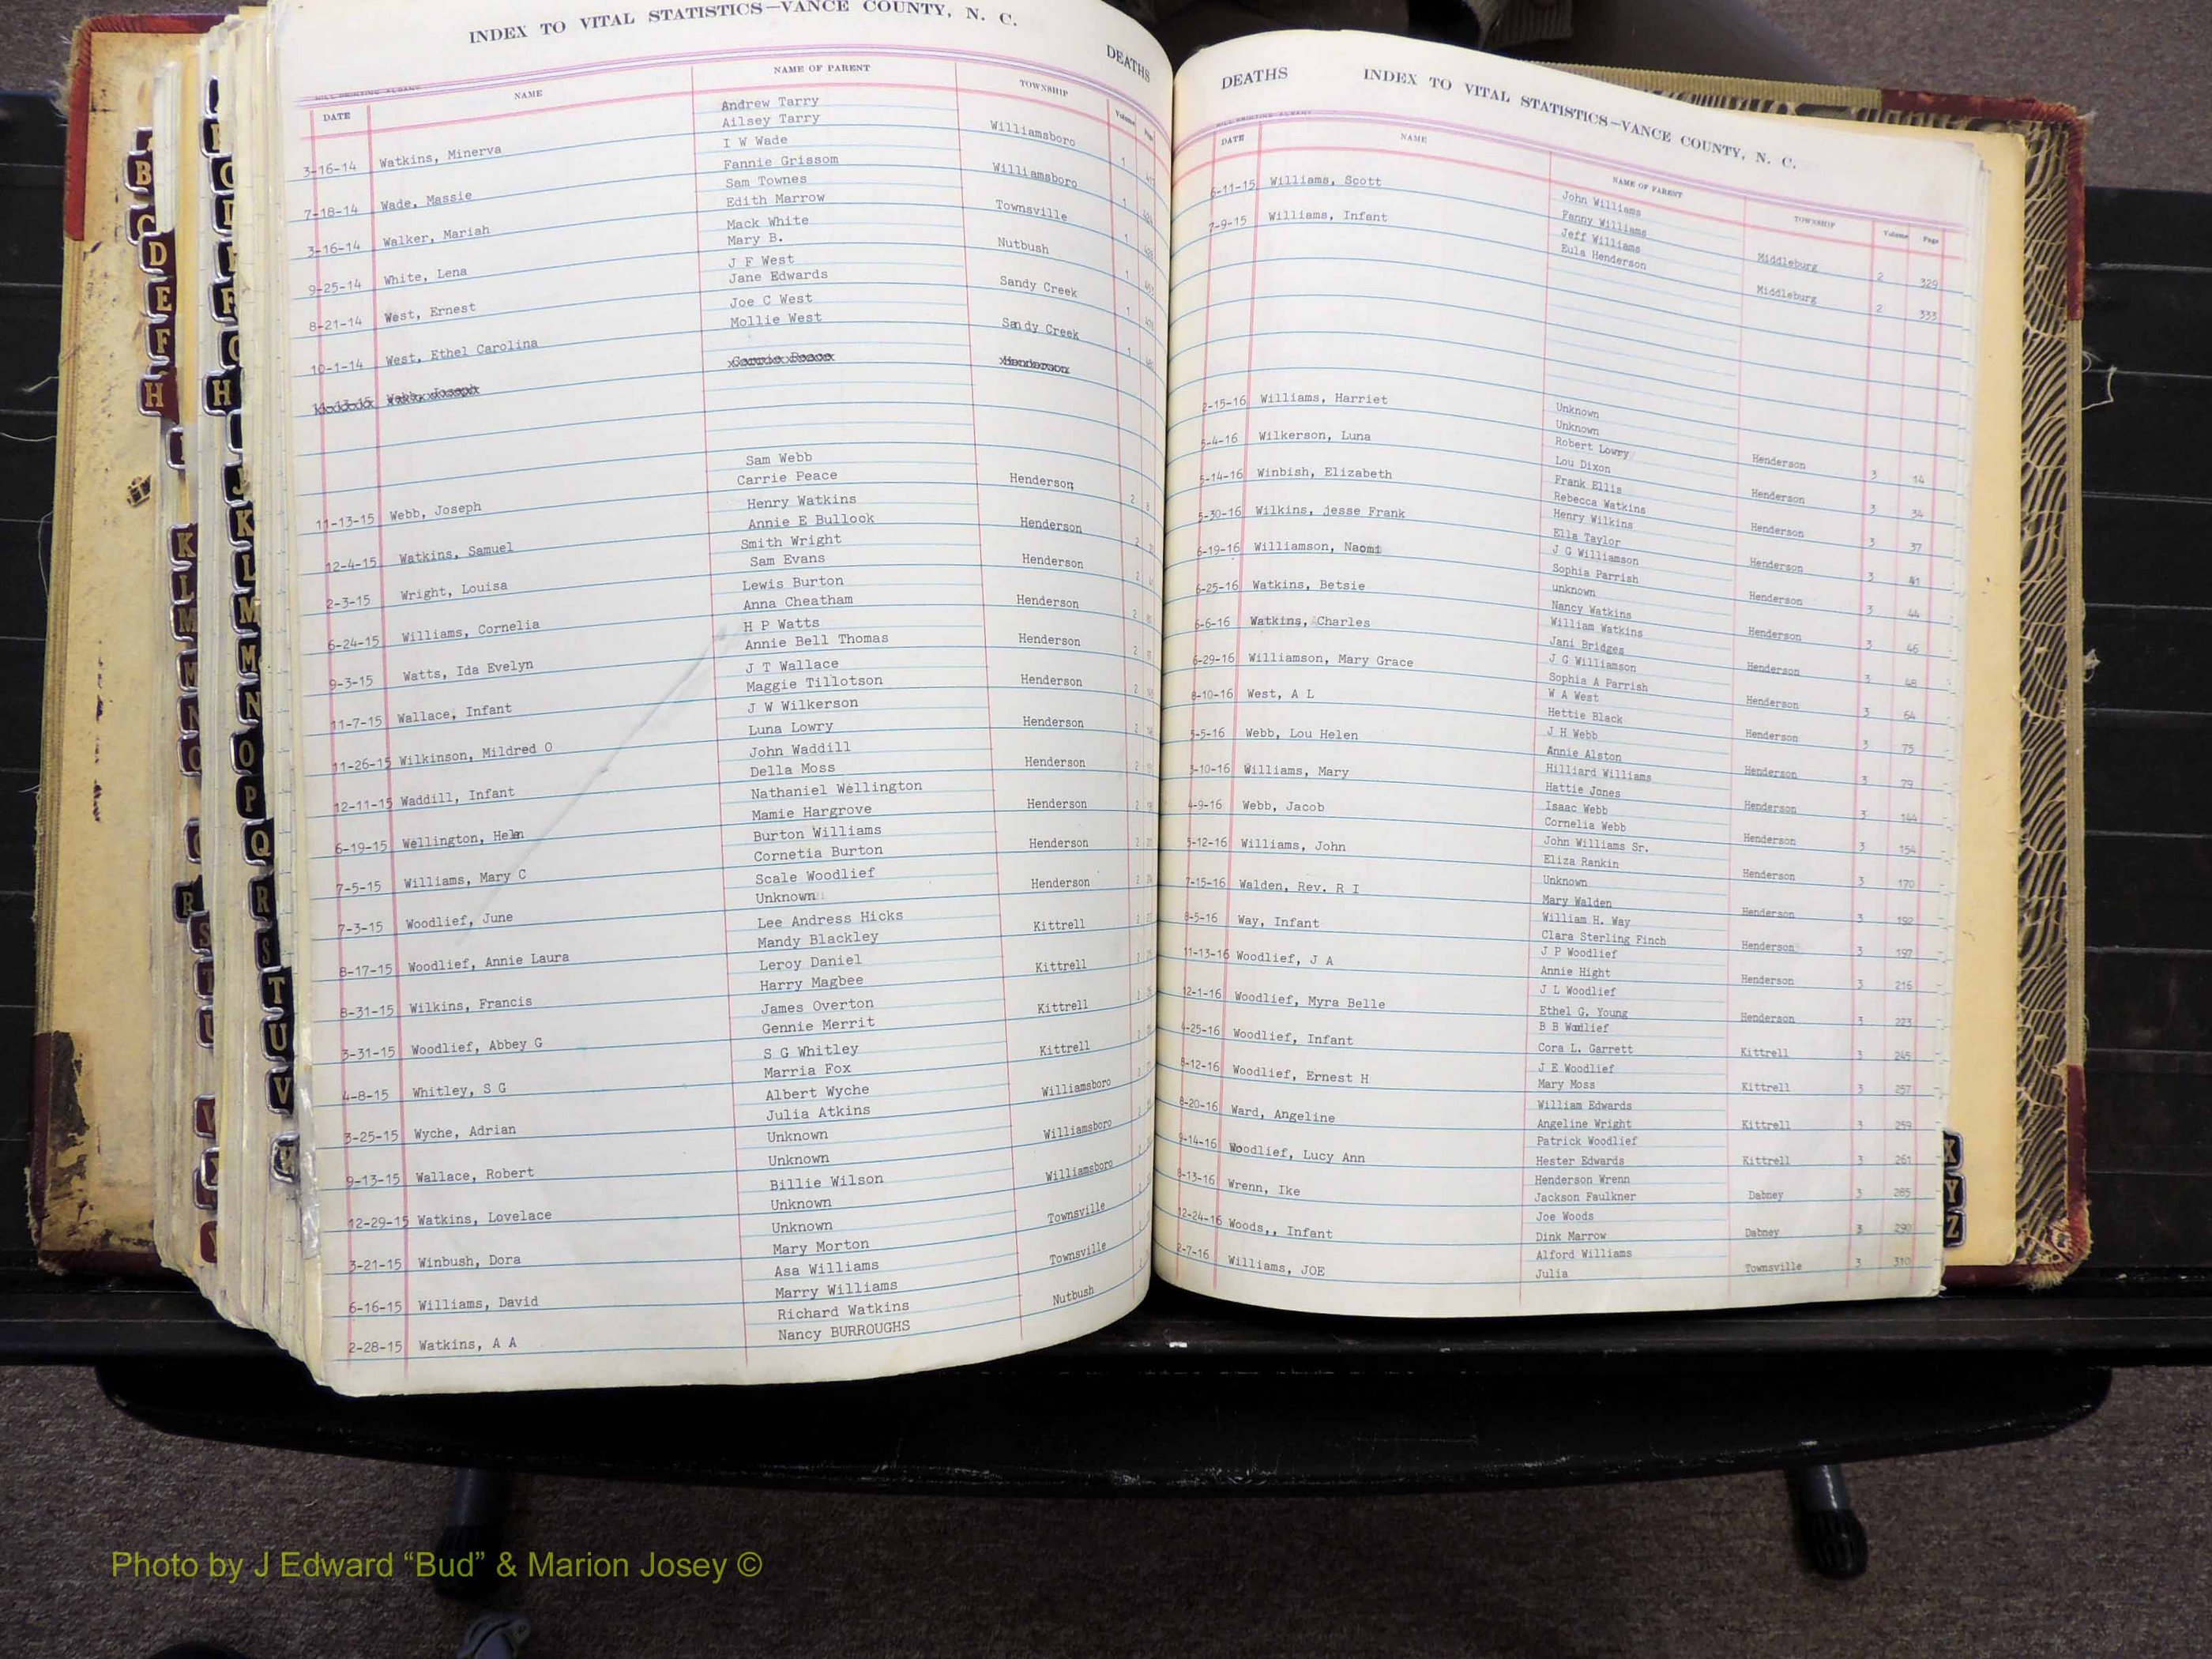 INDEX TO VITAL STATISTICS—VANCE COUNTY, N. C.
DEATHS
DATE NAME NAME OF PARENT TOWNSHIP Volume
Andrew Tarry
3-16-14 Watkins, Minerva Ailsey Tarry Williamsboro 1
I W Wade
7-18-14 Wade, Massie Fannie Grissom Williamsboro 1
Sam Townes
3-16-14 Walker, Mariah Edith Marrow Townsville 1
Mack White
9-25-14 White, Lena Mary B. Nutbush 1
J F West
8-21-14 West, Ernest Jane Edwards Sandy Creek 1
Joe C West
10-1-14 West, Ethel Carolina Mollie West Sandy Creek 1
Sam Webb
11-13-15 Webb, Joseph Carrie Peace Henderson 2
Henry Watkins
12-4-15 Watkins, Samuel Annie E Bullock Henderson 2
Smith Wright
2-3-15 Wright, Louisa Sam Evans Henderson 2
Lewis Burton
6-24-15 Williams, Cornelia Anna Cheatham Henderson 2
H P Watts
9-3-15 Watts, Ida Evelyn Annie Bell Thomas Henderson 2
J T Wallace
11-7-15 Wallace, Infant Maggie Tillotson Henderson 2
J W Wilkerson
11-26-15 Wilkinson, Mildred O Luna Lowry Henderson 2
John Waddill
12-11-15 Waddill, Infant Della Moss Henderson 2
Nathaniel Wellington
6-19-15 Wellington, Helen Mamie Hargrove Henderson 2
Burton Williams
7-5-15 Williams, Mary C Cornetia Burton Henderson 2
Scale Woodlief
7-3-15 Woodlief, June Unknown Henderson 2
Lee Andress Hicks
8-17-15 Woodlief, Annie Laura Mandy Blackley Kittrell
Leroy Daniel
8-31-15 Wilkins, Francis Harry Magbee Kittrell
James Overton
3-31-15 Woodlief, Abbey G Gennie Merrit Kittrell
S G Whitley
4-8-15 Whitley, S G Marria Fox Kittrell
Albert Wyche
3-25-15 Wyche, Adrian Julia Atkins Williamsboro
Unknown
9-13-15 Wallace, Robert Unknown Williamsboro
Billie Wilson
12-29-15 Watkins, Lovelace Unknown Williamsboro
Unknown
3-21-15 Winbush, Dora Mary Morton Townsville
Asa Williams
6-16-15 Williams, David Marry Williams Townsville
Richard Watkins
2-28-15 Watkins, A A Nancy BURROUGHS Nutbush
DEATHS INDEX TO VITAL STATISTICS—VANCE COUNTY, N. C.
DATE NAME NAME OF PARENT TOWNSHIP Volume Page
6-11-15 Williams, Scott John Williams
Fanny Williams Middleburg 2 329
7-9-15 Williams, Infant Jeff Williams
Eula Henderson Middleburg 2 333
2-15-16 Williams, Harriet Unknown
Unknown Henderson 3 14
5-4-16 Wilkerson, Luna Robert Lowry
Lou Dixon Henderson 3 34
5-14-16 Winbish, Elizabeth Frank Ellis
Rebecca Watkins Henderson 3 37
5-30-16 Wilkins, jesse Frank Henry Wilkins
Ella Taylor Henderson 3 41
6-19-16 Williamson, Naomi J G Williamson
Sophia Parrish Henderson 3 44
6-25-16 Watkins, Betsie unknown
Nancy Watkins Henderson 3 46
6-6-16 Watkins, Charles William Watkins
Jani Bridges Henderson 3 48
6-29-16 Williamson, Mary Grace J G Williamson
Sophia A Parrish Henderson 3 64
8-10-16 West, A L W A West
Hettie Black Henderson 3 75
5-5-16 Webb, Lou Helen J H Webb
Annie Alston Henderson 3 79
3-10-16 Williams, Mary Hilliard Williams
Hattie Jones Henderson 3 144
4-9-16 Webb, Jacob Isaac Webb
Cornelia Webb Henderson 3 154
5-12-16 Williams, John John Williams Sr.
Eliza Rankin Henderson 3 170
7-15-16 Walden, Rev. R I Unknown
Mary Walden Henderson 3 192
8-5-16 Way, Infant William H. Way
Clara Sterling Finch Henderson 3 197
11-13-16 Woodlief, J A J P Woodlief
Annie Hight Henderson 3 216
12-1-16 Woodlief, Myra Belle J L Woodlief
Ethel G. Young Henderson 3 223
4-25-16 Woodlief, Infant B B Woodlief
Cora L. Garrett Kittrell 3 245
8-12-16 Woodlief, Ernest H J E Woodlief
Mary Moss Kittrell 3 257
8-20-16 Ward, Angeline William Edwards
Angeline Wright Kittrell 3 259
9-14-16 Woodlief, Lucy Ann Patrick Woodlief
Hester Edwards Kittrell 3 261
8-13-16 Wrenn, Ike Henderson Wrenn
Jackson Faulkner Dabney 3 285
12-24-16 Woods,, Infant Joe Woods
Dink Marrow Dabney 3 290
2-7-16 Williams, JOE Alford Williams
Julia Townsville 3 310
B
C
D
E
F
H
K
L
M
N
O
P
Q
R
S
T
U
V
W
X
Y
Z
Photo by J Edward “Bud” & Marion Josey ©